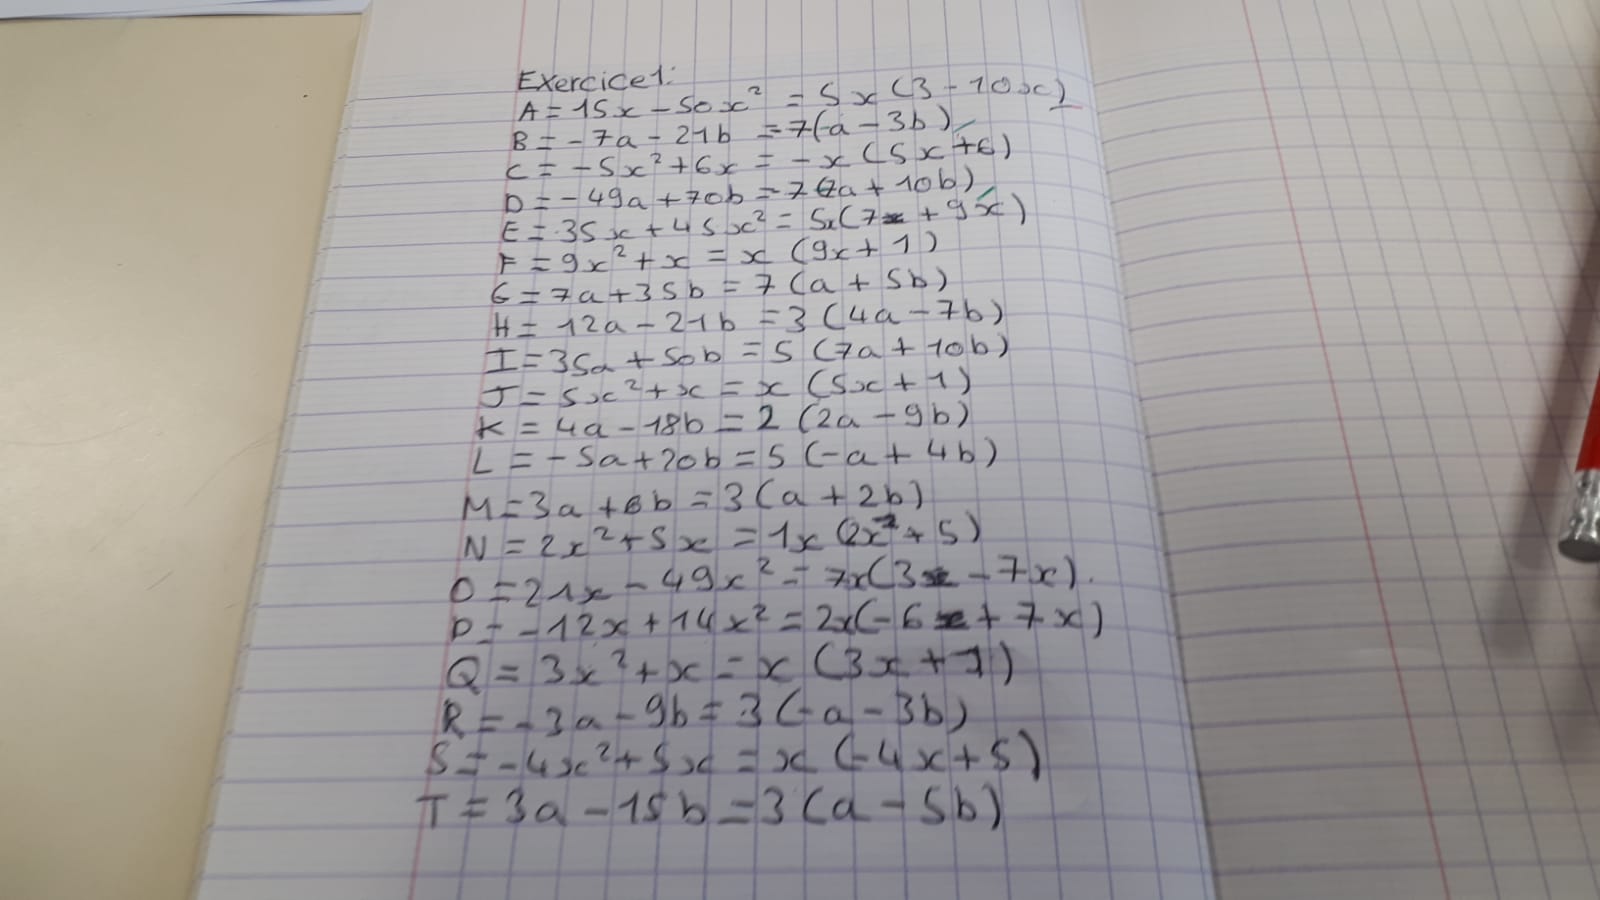 Exercice 1:
A = 15x - 50x² = 5x(3 - 10x)
B = -7a - 21b = 7(-a - 3b)
C = -5x² + 6x = -x (5x + 6)
D = -49a + 70b = 7(-7a + 10b)
E = 35x + 45x² = 5x(7 + 9x)
F = 9x² + x = x (9x + 1)
G = 7a + 35b = 7 (a + 5b)
H = 12a - 21b = 3 (4a - 7b)
I = 35a + 50b = 5 (7a + 10b)
J = 5x² + x = x (5x + 1)
K = 4a - 18b = 2 (2a - 9b)
L = -5a + 20b = 5 (-a + 4b)
M = 3a + 6b = 3 (a + 2b)
N = 2x² + 5x = 1x (2x + 5)
O = 21x - 49x² = 7x(3 - 7x).
P = -12x + 14x² = 2x(-6 + 7x)
Q = 3x² + x = x (3x + 1)
R = -3a - 9b = 3 (-a - 3b)
S = -4x² + 5x = x (-4x + 5)
T = 3a - 15b = 3 (a - 5b)